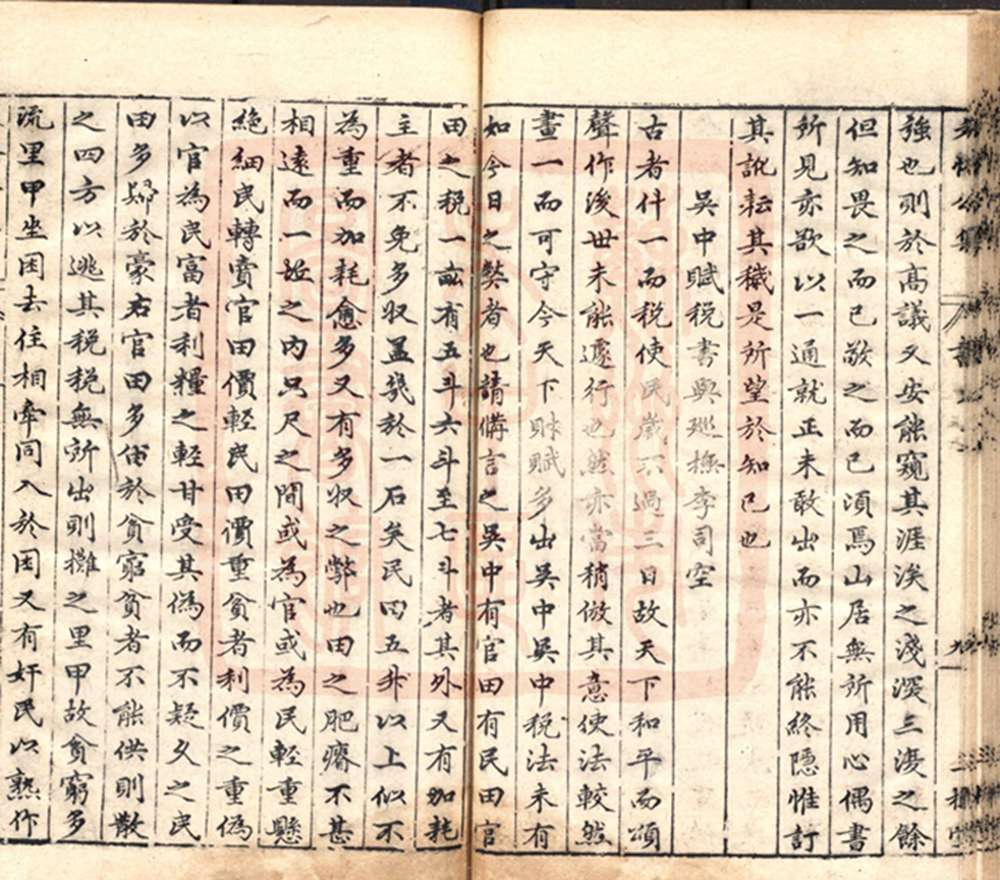 強也則於髙議又安能窺其涯涘之淺深三湲之餘
但知畏之而已敬之而已湏焉山居無所用心偶書
所見亦欲以一通就正未敢出而亦不能終隠惟訂
其訛耘其穢是所望於知已也
吳中賦税書與巡撫李司空
古者什一而税使民歲不過三日故天下和平而頌
聲作後世未能遽行也然亦當稍倣其意使法較然
畫一而可守今天下財賦多出吳中吳中税法未有
如今日之弊者也請備言之吳中有官田有民田官
田之税一畝有五斗六斗至七斗者其外又有加耗
主者不免多収盖幾於一石矣民田五升以上似不
為重而加耗愈多又有多収之弊也田之肥瘠不甚
相逺而一坵之内只尺之間或為官或為民輕重懸
絶細民轉賣官田價輕民田價重貧者利價之重偽
以官為民富者利糧之軽甘受其偽而不疑久之民
田多歸於豪右官田多留於貧窮貧者不能供則散
之四方以逃其税税無所出則攤之里甲故貧窮多
流里甲坐困去住相牽同入於困又有奸民以熟作